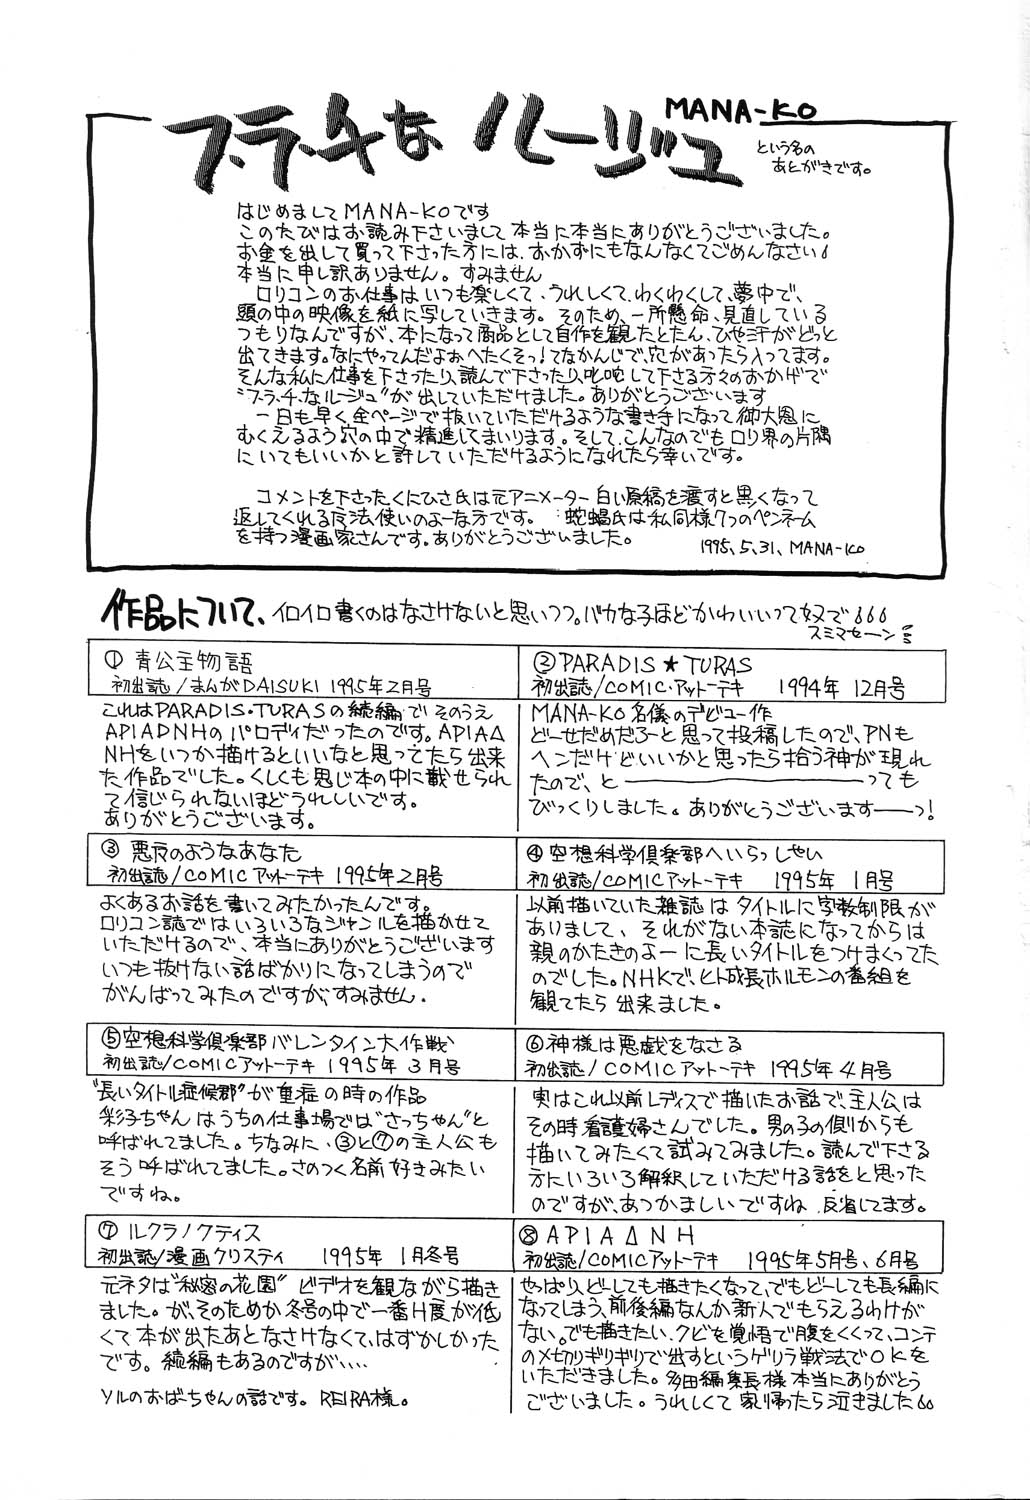 フ・ラ・チな ルージュ
MANA-KO
という名の
あとがきです。
はじめましてMANA-KOです
このたびはお読み下さいまして本当に本当にありがとうございました。
お金を出して買って下さった方には、おかずにもなんなくてごめんなさい
本当に申し訳ありません。すみません
ロリコンのお仕事はいつも楽しくて、うれしくて、わくわくして、夢中で、
頭の中の映像を紙に写していきます。そのため、一所懸命、見直している
つもりなんですが、本になって商品として自作を観たとたん、ひや汗がどっと
出てきます。なにやってんだよぉへたくそっ!てなかんじで、穴があったら入ってます。
そんな私に仕事を下さったり、読んで下さったり、叱咤して下さる方々のおかげで
"フ・ラ・チなルージュ"が出していただけました。ありがとうございます
一日も早く全ページで抜いていただけるような書き手になって御大恩に
むくえるよう穴の中で精進してまいります。そして、こんなのでもロリ界の片隅
にいてもいいかと許していただけるようになれたら幸いです。
コメントを下さったくにひさ氏は元アニメーター白い原稿を渡すと黒くなって
返してくれる魔法使いのよーな方です。蛇蝎氏は私同様7つのペンネーム
を持つ漫画家さんです。ありがとうございました。
1995、5、31、MANA-KO
作品について、イロイロ書くのはなさけないと思いつつ。バカな子ほどかわいいって奴で
スミマセーン
① 青公主物語
初出誌/まんがDAISUKI 1995年2月号
これはPARADIS・TURASの続編でそのうえ
APIAΔNHのパロディだったのです。APIAΔ
NHをいつか描けるといいなと思ってたら出来
た作品でした。くしくも同じ本の中に載せられ
て信じられないほどうれしいです。
ありがとうございます。
② PARADIS★TURAS
初出誌/COMIC・アットーテキ 1994年12月号
MANA-KO名儀のデビュー作
どーせだめだろーと思って投稿したので、PNも
ヘンだけどいいかと思ったら拾う神が現れ
たので、と――――――――っても
びっくりしました。ありがとうございます――っ!
③ 悪夜のようなあなた
初出誌/COMICアットーテキ 1995年2月号
よくあるお話を書いてみたかったんです。
ロリコン誌ではいろいろなジャンルを描かせて
いただけるので、本当にありがとうございます
いつも抜けない話ばかりになってしまうので
がんばってみたのですが、すみません.
④ 空想科学倶楽部へいらっしゃい
初出誌/COMICアットーテキ 1995年 1月号
以前描いていた雑誌はタイトルに字数制限が
ありまして、それがない本誌になってからは
親のかたきのよーに長いタイトルをつけまくってた
のでした。NHKで、ヒト成長ホルモンの番組を
観てたら出来ました。
⑤空想科学倶楽部バレンタイン大作戦
初出誌/COMICアットーテキ 1995年 3月号
"長いタイトル症候郡"が重症の時の作品
彩子ちゃんはうちの仕事場では"さっちゃん"と
呼ばれてました。ちなみに、③と⑦の主人公も
そう呼ばれてました。さのつく名前好きみたい
ですね。
⑥神様は悪戯をなさる
初出誌/COMICアットーテキ 1995年4月号
実はこれ以前レディスで描いたお話で、主人公は
その時看護婦さんでした。男の子の側からも
描いてみたくて試みてみました。読んで下さる
方にいろいろ解釈していただける話をと思った
のですが、あつかましいですね 反省してます。
⑦ ルクラノクティス
初出誌/漫画クリスティ 1995年 1月冬号
元ネタは"秘密の花園" ビデオを観ながら描き
ました。が、そのためか冬号の中で一番H度が低
くて本が出たあとなさけなくて、はずかしかった
です。続編もあるのですが・・・・
ソルのおばーちゃんの話です。REIRA様。
⑧ APIAΔNH
初出誌/COMICアットーテキ 1995年5月号、6月号
やっぱり、どーしても描きたくなって、でもどーしても長編に
なってしまう、前後編なんか新人でもらえるわけが
ない。でも描きたい、クビを覚悟で腹をくくって、コンテ
のメ切りギリギリで出すというゲリラ戦法でOKを
いただきました。多田編集長様本当にありがとう
ございました。うれしくて家帰ったら泣きました